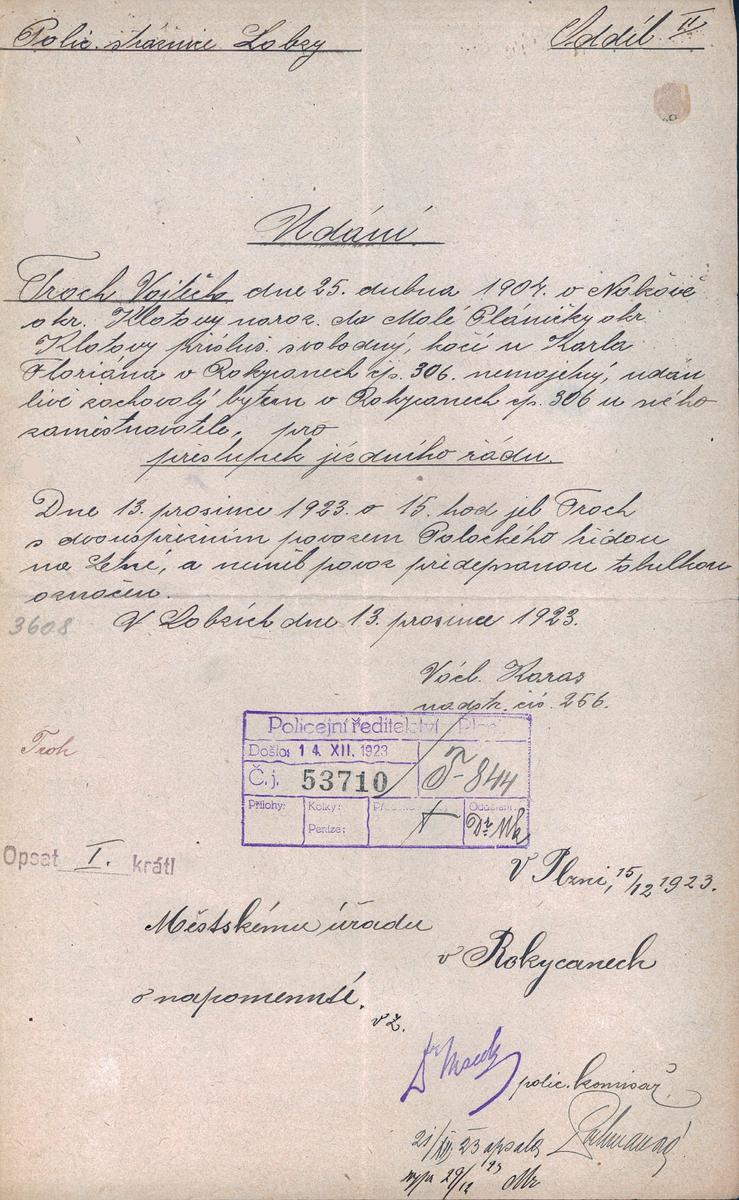 Polic. strážnice Lobzy
Odděl. IV
Udání.
Troch Vojtěch dne 25. dubna 1904. v
okr. Klatovy naroz. do Malé Pláničky okr.
Klatovy přísluš. svobodný, kočí u Karla
Floriana v Rokycanech čp. 306. nemajetný, udán
livě zachovalý bytem v Rokycanech čp. 306 u svého
zaměstnavatele, pro
přestupek jízdního řádu.
Dne 13. prosince 1923. o 15. hod jel Troch
s dvouspřežním povozem Palackého třídou
na Letné, a neměl povoz předepsanou tabulkou
označen.
V Lobzích dne 13. prosince 1923.
3608
Václ. Karas
nadstr. čís. 256.
Policejní ředitelství Plzeň
Došlo: 14. XII. 1923
Č. j. 53710
T-844
Přílohy:
Kolky:
Peníze:
Oddělení:
Troh
Opsat I. krát!
V Plzni, 15/12 1923.
Městskému úřadu
v Rokycanech
o napomenutí.
v z.
polic. komisař
21/XII 23 opsala
29/12 23